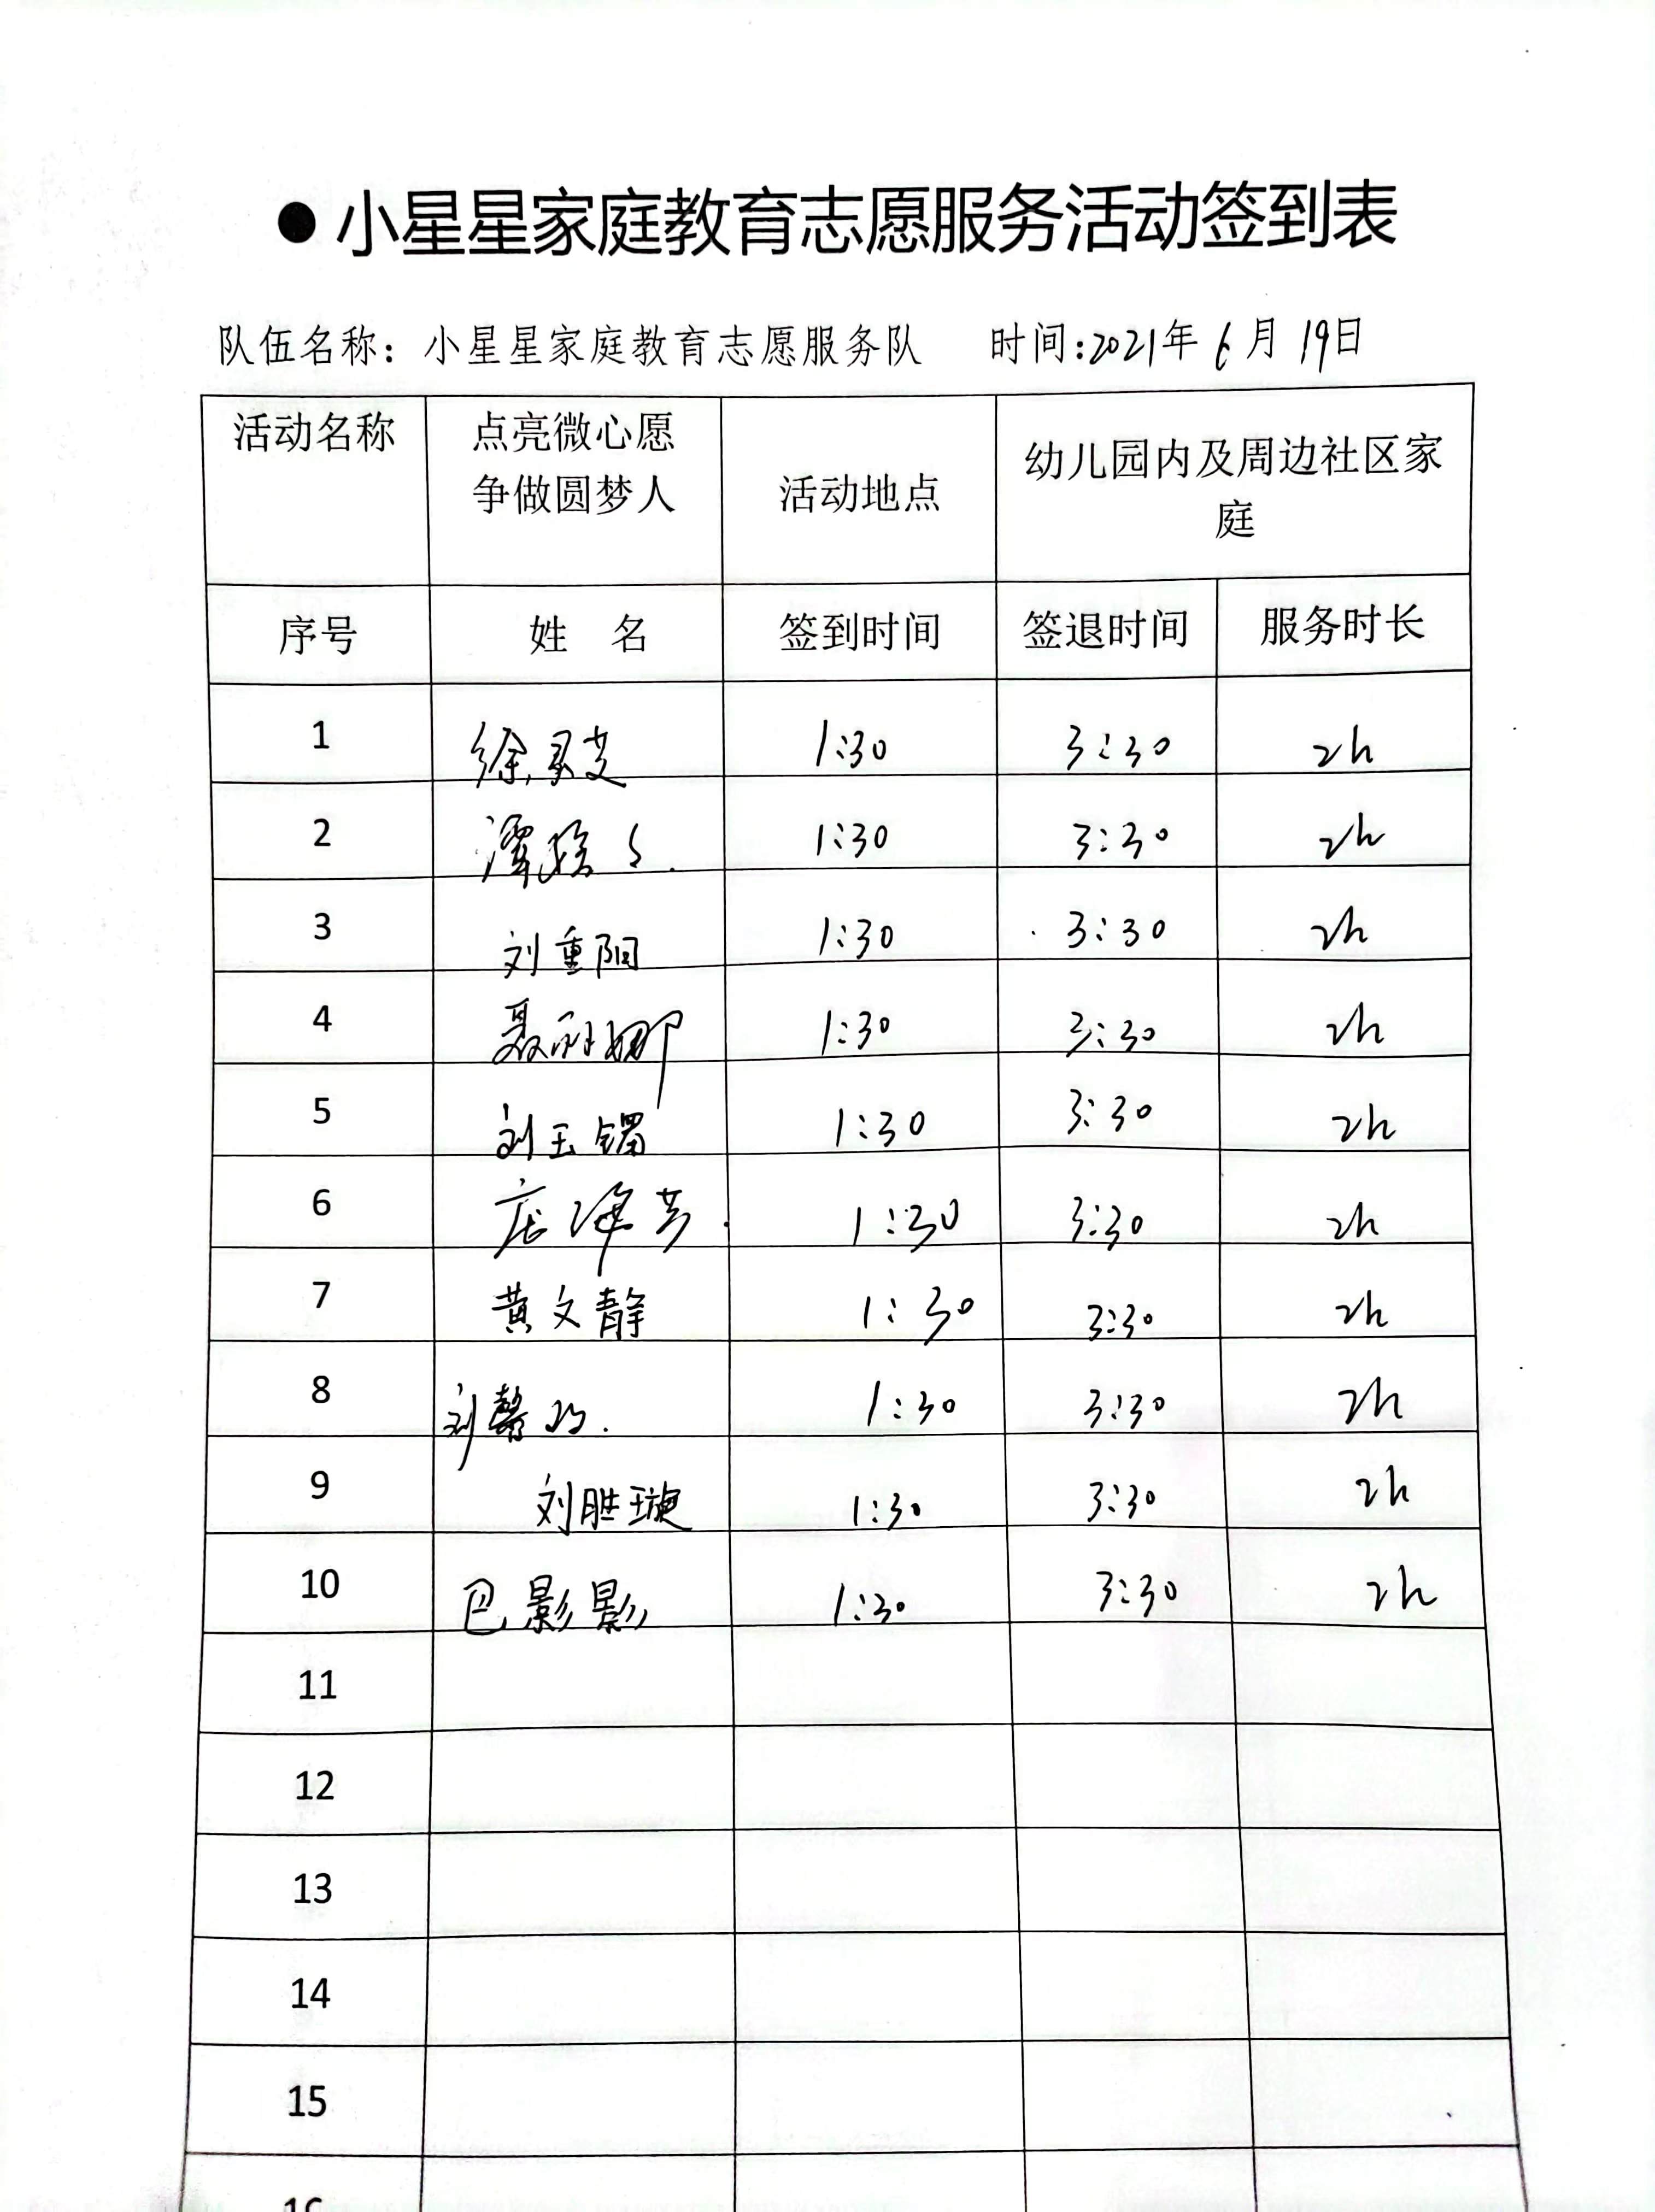 ●小星星家庭教育志愿服务活动签到表
队伍名称：小星星家庭教育志愿服务队 时间:2021年6月19日
活动名称 点亮微心愿 争做圆梦人 活动地点 幼儿园内及周边社区家庭
序号 姓 名 签到时间 签退时间 服务时长
1 徐灵芝 1:30 3:30 2h
2 1:30 3:30 2h
3 刘重阳 1:30 3:30 2h
4 聂丽娜 1:30 3:30 2h
5 刘玉镯 1:30 3:30 2h
6 1:30 3:30 2h
7 黄文静 1:30 3:30 2h
8 刘馨 1:30 3:30 2h
9 刘胜璇 1:30 3:30 2h
10 巴影影 1:30 3:30 2h
11
12
13
14
15
16